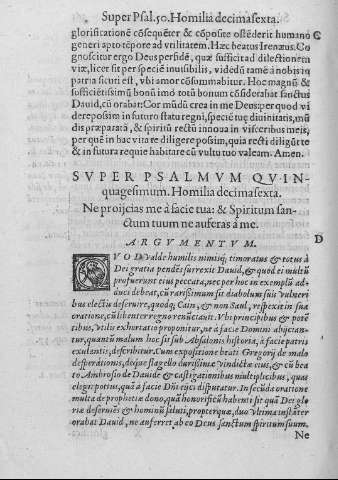 Super Psal.50. Homilia decimasexta.
glorificatione cōsequēter & cōposite ostēderit humano C
generi apto tēpore ad vtilitatem. Hæc beatus Irenæus. Co
gnoscitur ergo Deus per fidē, quæ sufficit ad dilectionem
viæ, licet sit per speciē inuisibilis, vidēdū tamē à nobis in
patria sicuti est, vbi amor cōsummabitur. Hoc magnū &
sufficiētissimū bonū imò totū bonum cōsiderabat sanctus
Dauid, cū orabat: Cor mūdū crea in me Deus: per quod vi
dere possim in futuro statu regni, specie tuę diuinitatis, mū
dis præparatā, & spiritū rectū innoua in visceribus meis,
per quē in hac vita te diligere possim, quia recti diligūt te
& in futura requie habitare cū vultu tuo valeam. Amen.
SVPER PSALMVM QVIN-
quagesimum. Homilia decimasexta.
Ne proijcias me à facie tua: & Spiritum san-
ctum tuum ne auferas à me.
ARGVMENTVM. D
QVOD valde humilis nimiūq; timoratus & totus à
Dei gratia pendēs surrexit Dauid, & quod ei multū
profuerunt eius peccata, nec per hoc in exemplū ad-
duci debeat, cū rarissimum sit diabolum suis vulneri
bus electis deseruire, quodq; Cain, & non Saul, respexit in sua
oratione, cū libenter regno renūciauit. Vbi principibus & potē
tibus, vtilis exhortatio proponitur, ne à facie Domini abijcian-
tur, quantū malum hoc sit sub Absalonis historia, à facie patris
exulantis, describitur. Cum expositione beati Gregorij de malo
desperationis, deque flagello durissimæ vindictæ eius, & cū bea
to Ambrosio de Dauide & castigationibus multiplicibus, quas
elegit potius, quā à facie Dñi eijci disputatur. In secūda oratione
multa de prophetiæ dono, quā honorificū habenti sit quā Dei glo
riæ deseruiēs & hominū saluti, propterquæ, duo vltima instāter
orabat Dauid, ne auferret ab eo Deus sanctum spiritum suum.
Ne